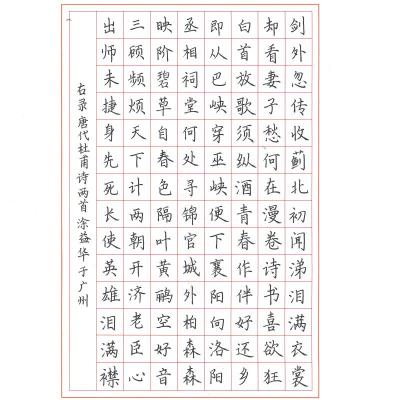 剑外忽传收蓟北初闻涕泪满衣裳
却看妻子愁何在漫卷诗书喜欲狂
白首放歌须纵酒青春作伴好还乡
即从巴峡穿巫峡便下襄阳向洛阳
丞相祠堂何处寻锦官城外柏森森
映阶碧草自春色隔叶黄鹂空好音
三顾频烦天下计两朝开济老臣心
出师未捷身先死长使英雄泪满襟
右录唐代杜甫诗两首涂益华于广州